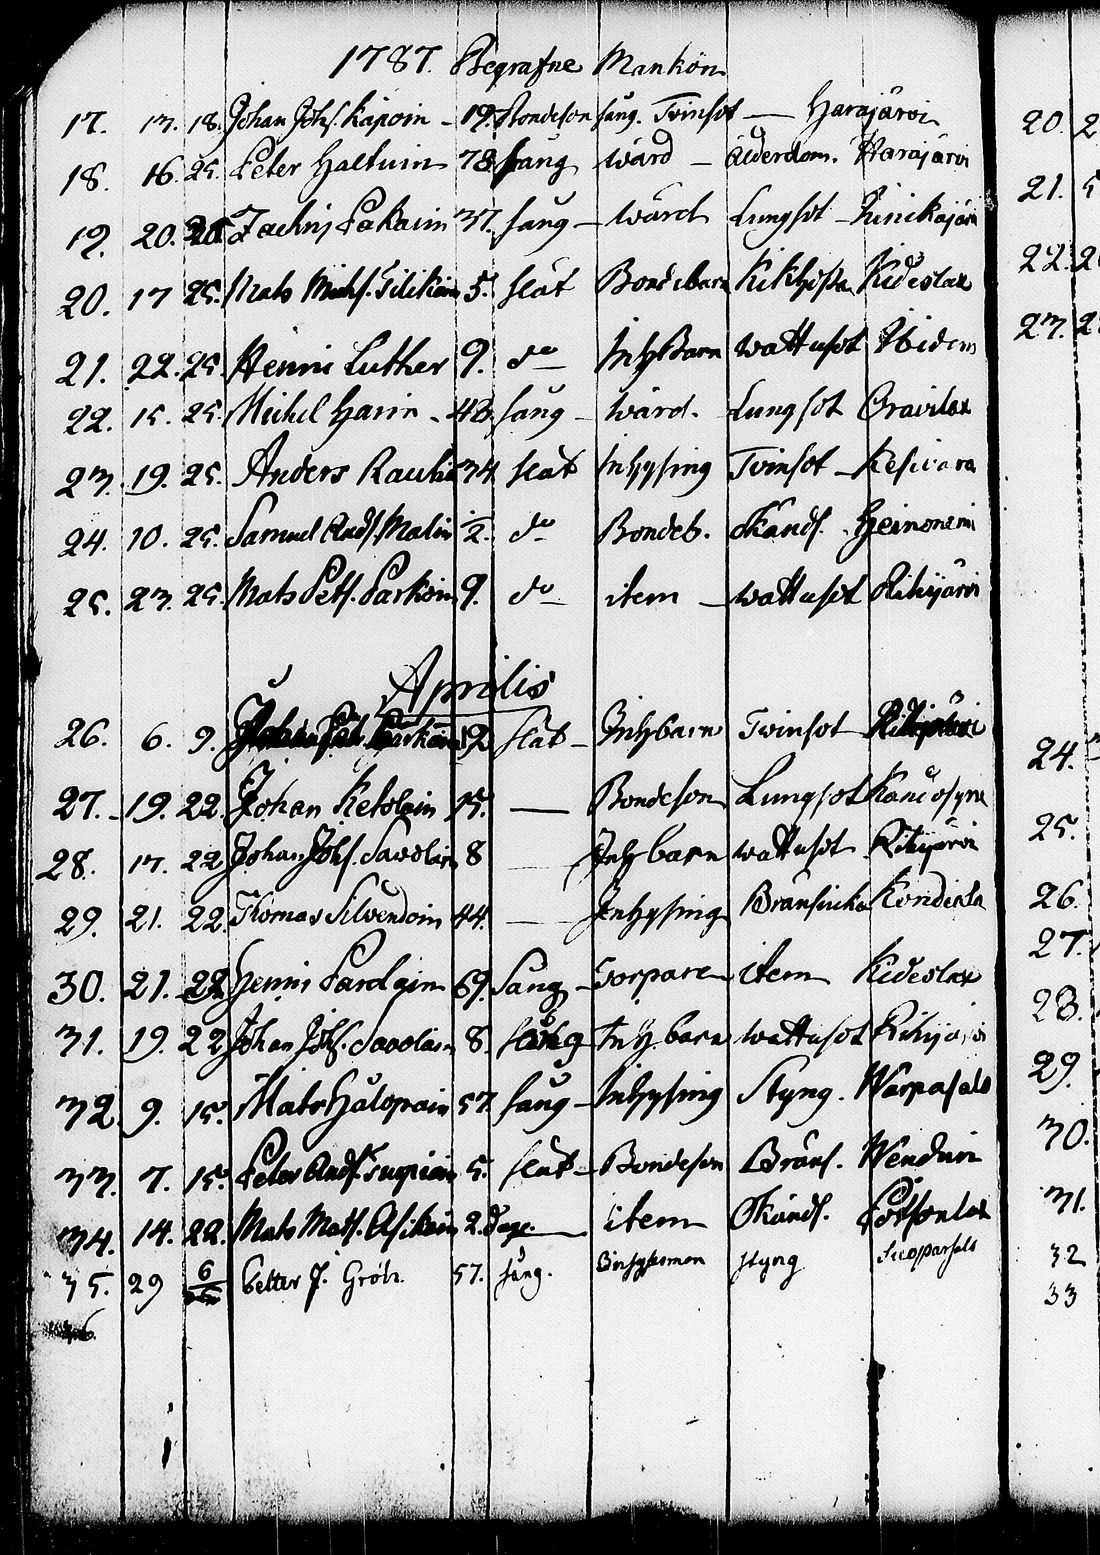 1787. Begrafne Mankön
17. 13. 18. Johan Johs. Kapoin - 19. Bondeson Säng. Tvinsot — Harajärvi
18. 16. 25. Peter Haltuin 78 Säng wärd - ålderdom. Harajärvi
19. 20. Zachris Pakain 37. Säng - wärd Lungsot -
20. 17 25. Mats Michs. Tilikain 5. flåt Bondebarn Kikhosta Kideslax
21. 22. 25. Henric Luther 9. do InhyBarn wattusot Ibidem
22. 15. 25. Michel Harin - 48 Säng - wärd. Lungsot Oravilax
23. 19. 25. Anders Rautia 34 flåt Inhysing Tvinsot - Kesivara
24. 10. 25. Samuel Ands. Malin 1/2. do Bondeb. Okänds. Heinoniemi
25. 23. 25. Mats Pets. Parkoin 9. do item - wattusot Rihijärvi
Aprilis
26. 6. 9. flåt - Inhybarn Tvinsot
27. - 19. 22. Johan Ketolain 15. — Bondeson Lungsot
28. 17. 22 Johan Johs. Savolain 8 — Inhybarn wattusot Rihijärvi
29. 21. 22. Thomas Silvendoin 44. — Inhysing Bränsiuka
30. 21. 22 Henric Pardain 69. Säng - Torpare item Kideslax
31. 19. 22 Johan Johs. Savolain 8. Säng Inhybarn wattusot Rihijärvi
32 9. 15. Mats Halopain 57. Säng - Inhysing Styng. Warpasalo
33. 7. 15. Peter Ands. 5. flåt - Bondeson Bräns.
34. 14. 22. Mats Mats. Asikain 2. Dage. — item Okänds. Potsonlax
35. 29 6 Petter J. Gröhn. 57. säng. styng
20. 2
21. 5
22. 2
23. 2
24.
25.
26.
27.
28.
29.
30.
31.
32
33